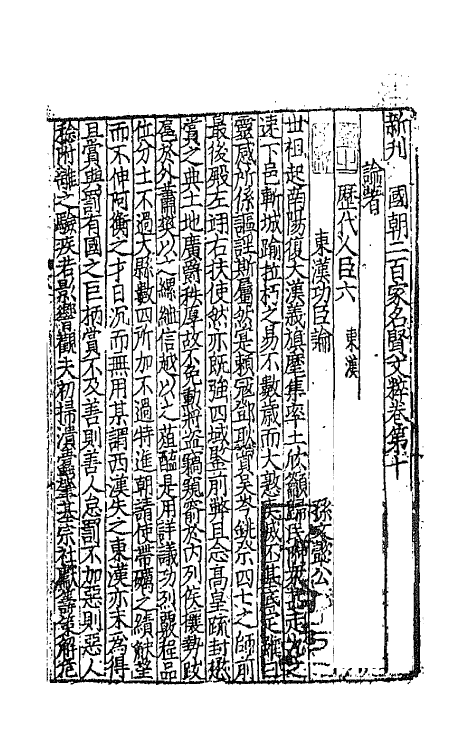 新刊國朝二百家名賢文粹卷第十
論著
歷代人臣六 東漢
東漢功臣論
世祖起南陽復大漢義旗麾集率土欣籲歸民
速下邑斬城踰拉朽之易不數歲而大憝
靈感所係謳謠斯屬然是賴寇鄧耿賈吳岑銚祭四七之師前
最後殿左翊右扶使然亦既強四域監前弊且念高皇疏封懋
賞之典土地廣爵秩厚故不免動將盜驕竊裔於內列侯儴勢跋
扈於外蕭樊以之縲紲信越以之葅醢是用詳議功烈覈程品
位分土不過大縣數四所加不過特進朝請使帶礪之績缺望
而不伸阿衡之才日沉而無用某謂西漢失之東漢亦未為得
且賞與罰有國之巨柄賞不及善則善人怠罰不加惡則惡人
稔附離之驗疾若影響觀夫初掃潰肇基宗社獻策解危